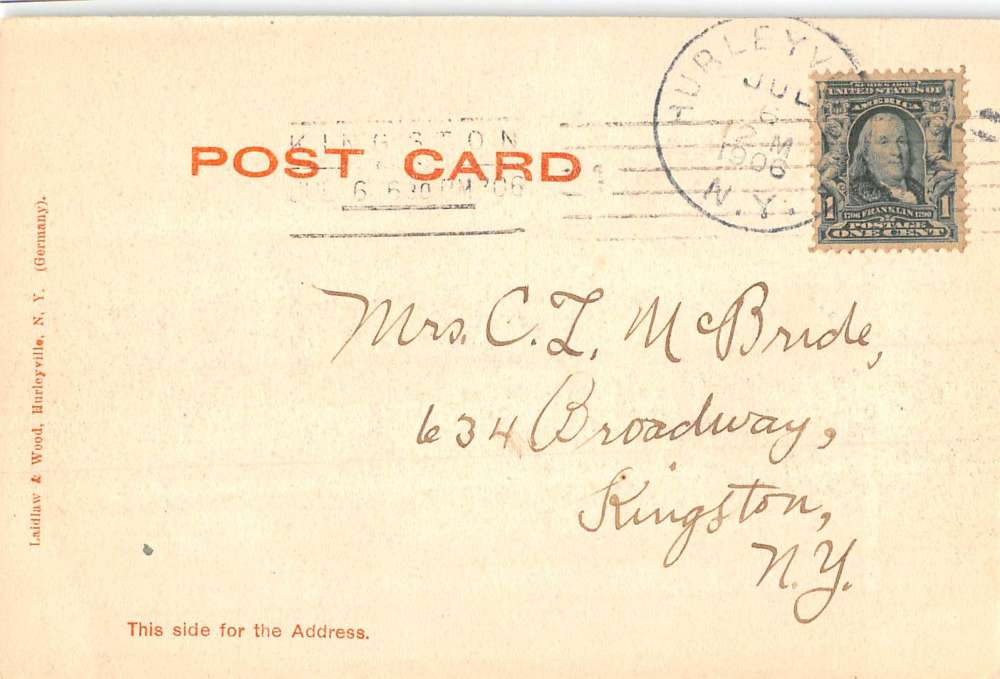 HURLEYV
JUL
6
12 M
1906
N.Y.
SERIES 1902
UNITED STATES OF
AMERICA
1 1
1706 FRANKLIN 1790
POSTAGE
ONE CENT
KINGSTON
6 630 PM '06
POST CARD
Mrs. C. L. McBride,
634 Broadway,
Kingston,
N.Y.
Laidlaw & Wood, Hurleyville, N. Y. (Germany).
This side for the Address.